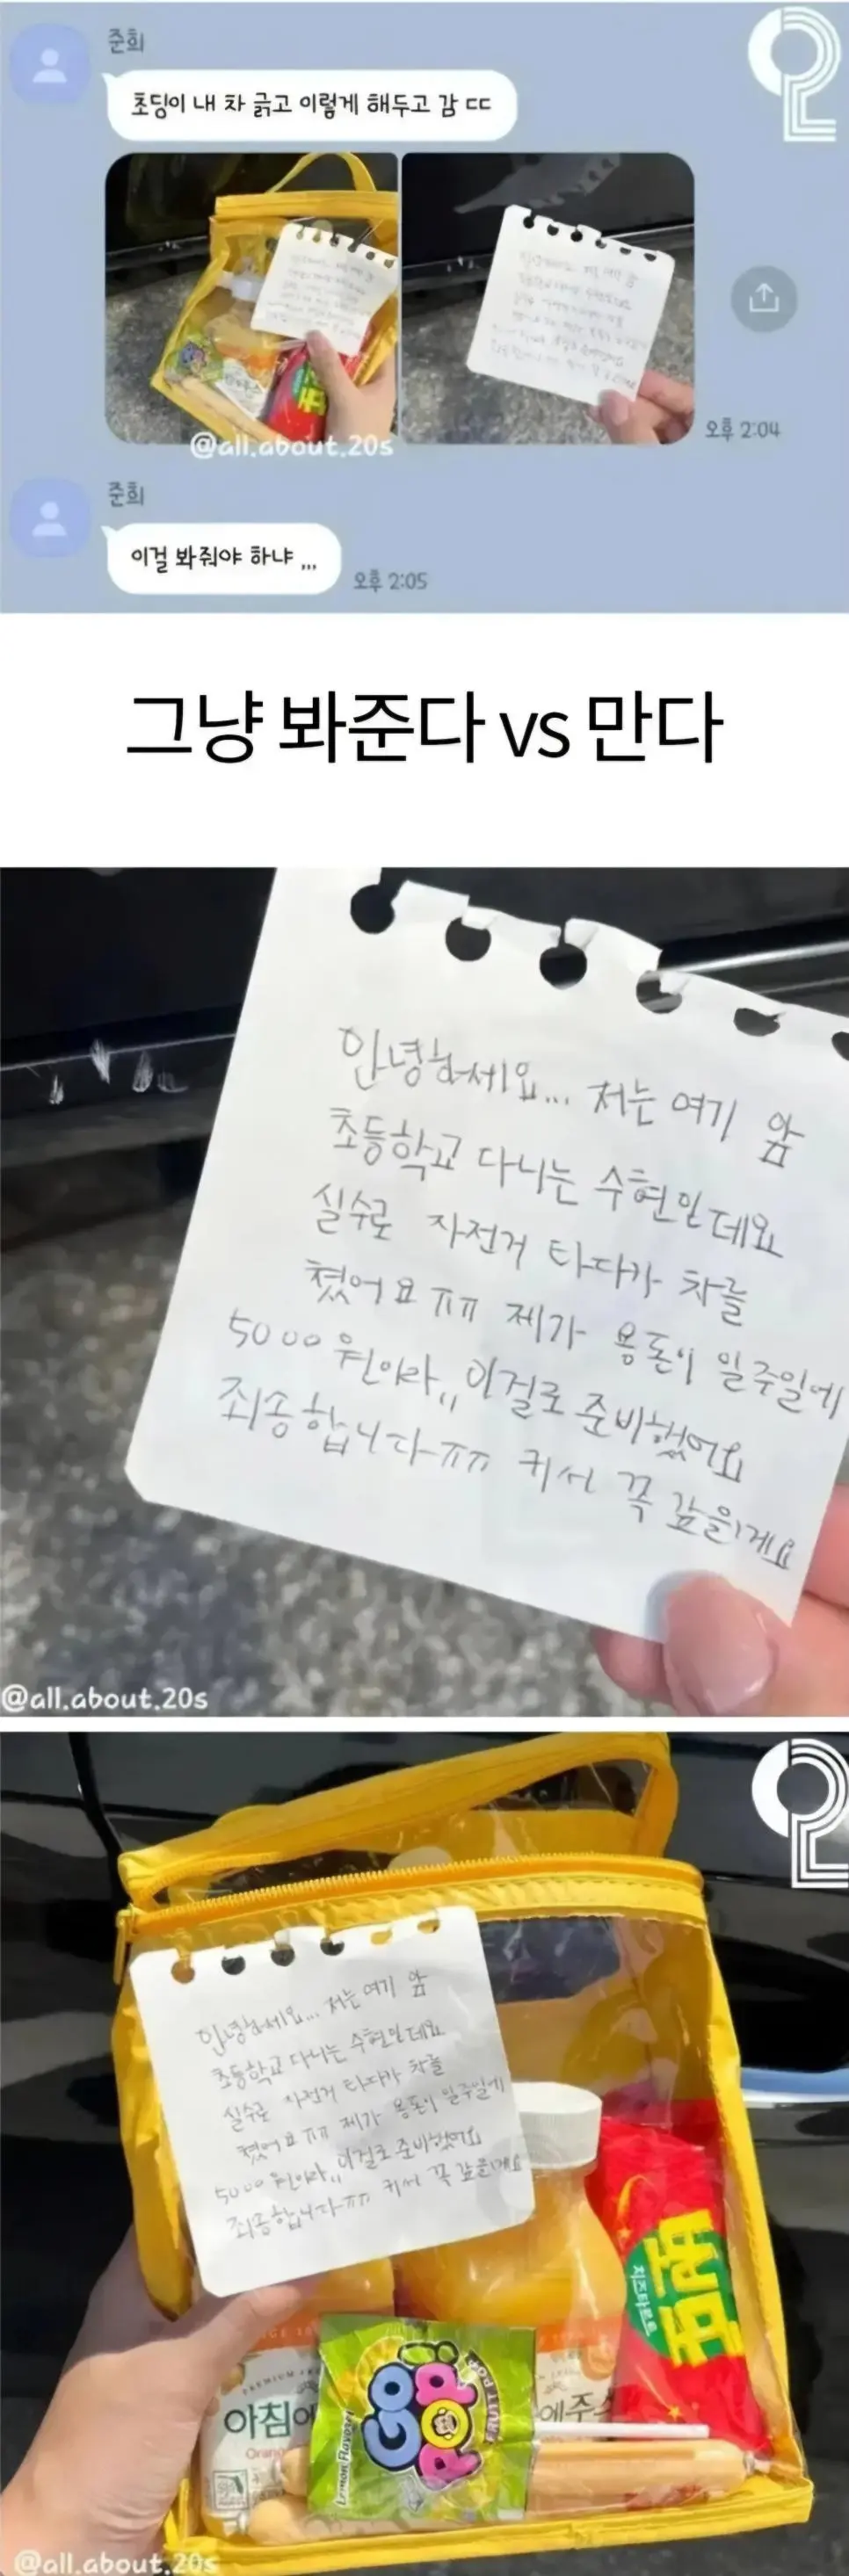 준희
초딩이 내 차 긁고 이렇게 해두고 감 ㄷㄷ
@all.about.20s
오후 2:04
준희
이걸 봐줘야 하냐 ,,,
오후 2:05
그냥 봐준다 vs 만다
안녕하세요... 저는 여기 앞
초등학교 다니는 수현인데요
실수로 자전거 타다가 차를
쳤어요 ㅠㅠ 제가 용돈이 일주일에
5000원이라,, 이걸로 준비했어요
죄송합니다ㅠㅠ 커서 꼭 갚을게요
@all.about.20s
안녕하세요... 저는 여기 앞
초등학교 다니는 수현인데요
실수로 자전거 타다가 차를
쳤어요 ㅠㅠ 제가 용돈이 일주일에
5000원이라,, 이걸로 준비했어요
죄송합니다ㅠㅠ 커서 꼭 갚을게요
치즈타르트
PREMIUM
아침에
Orang
에주스
GO! POP!
Lemon Flavored
@all.about.20s